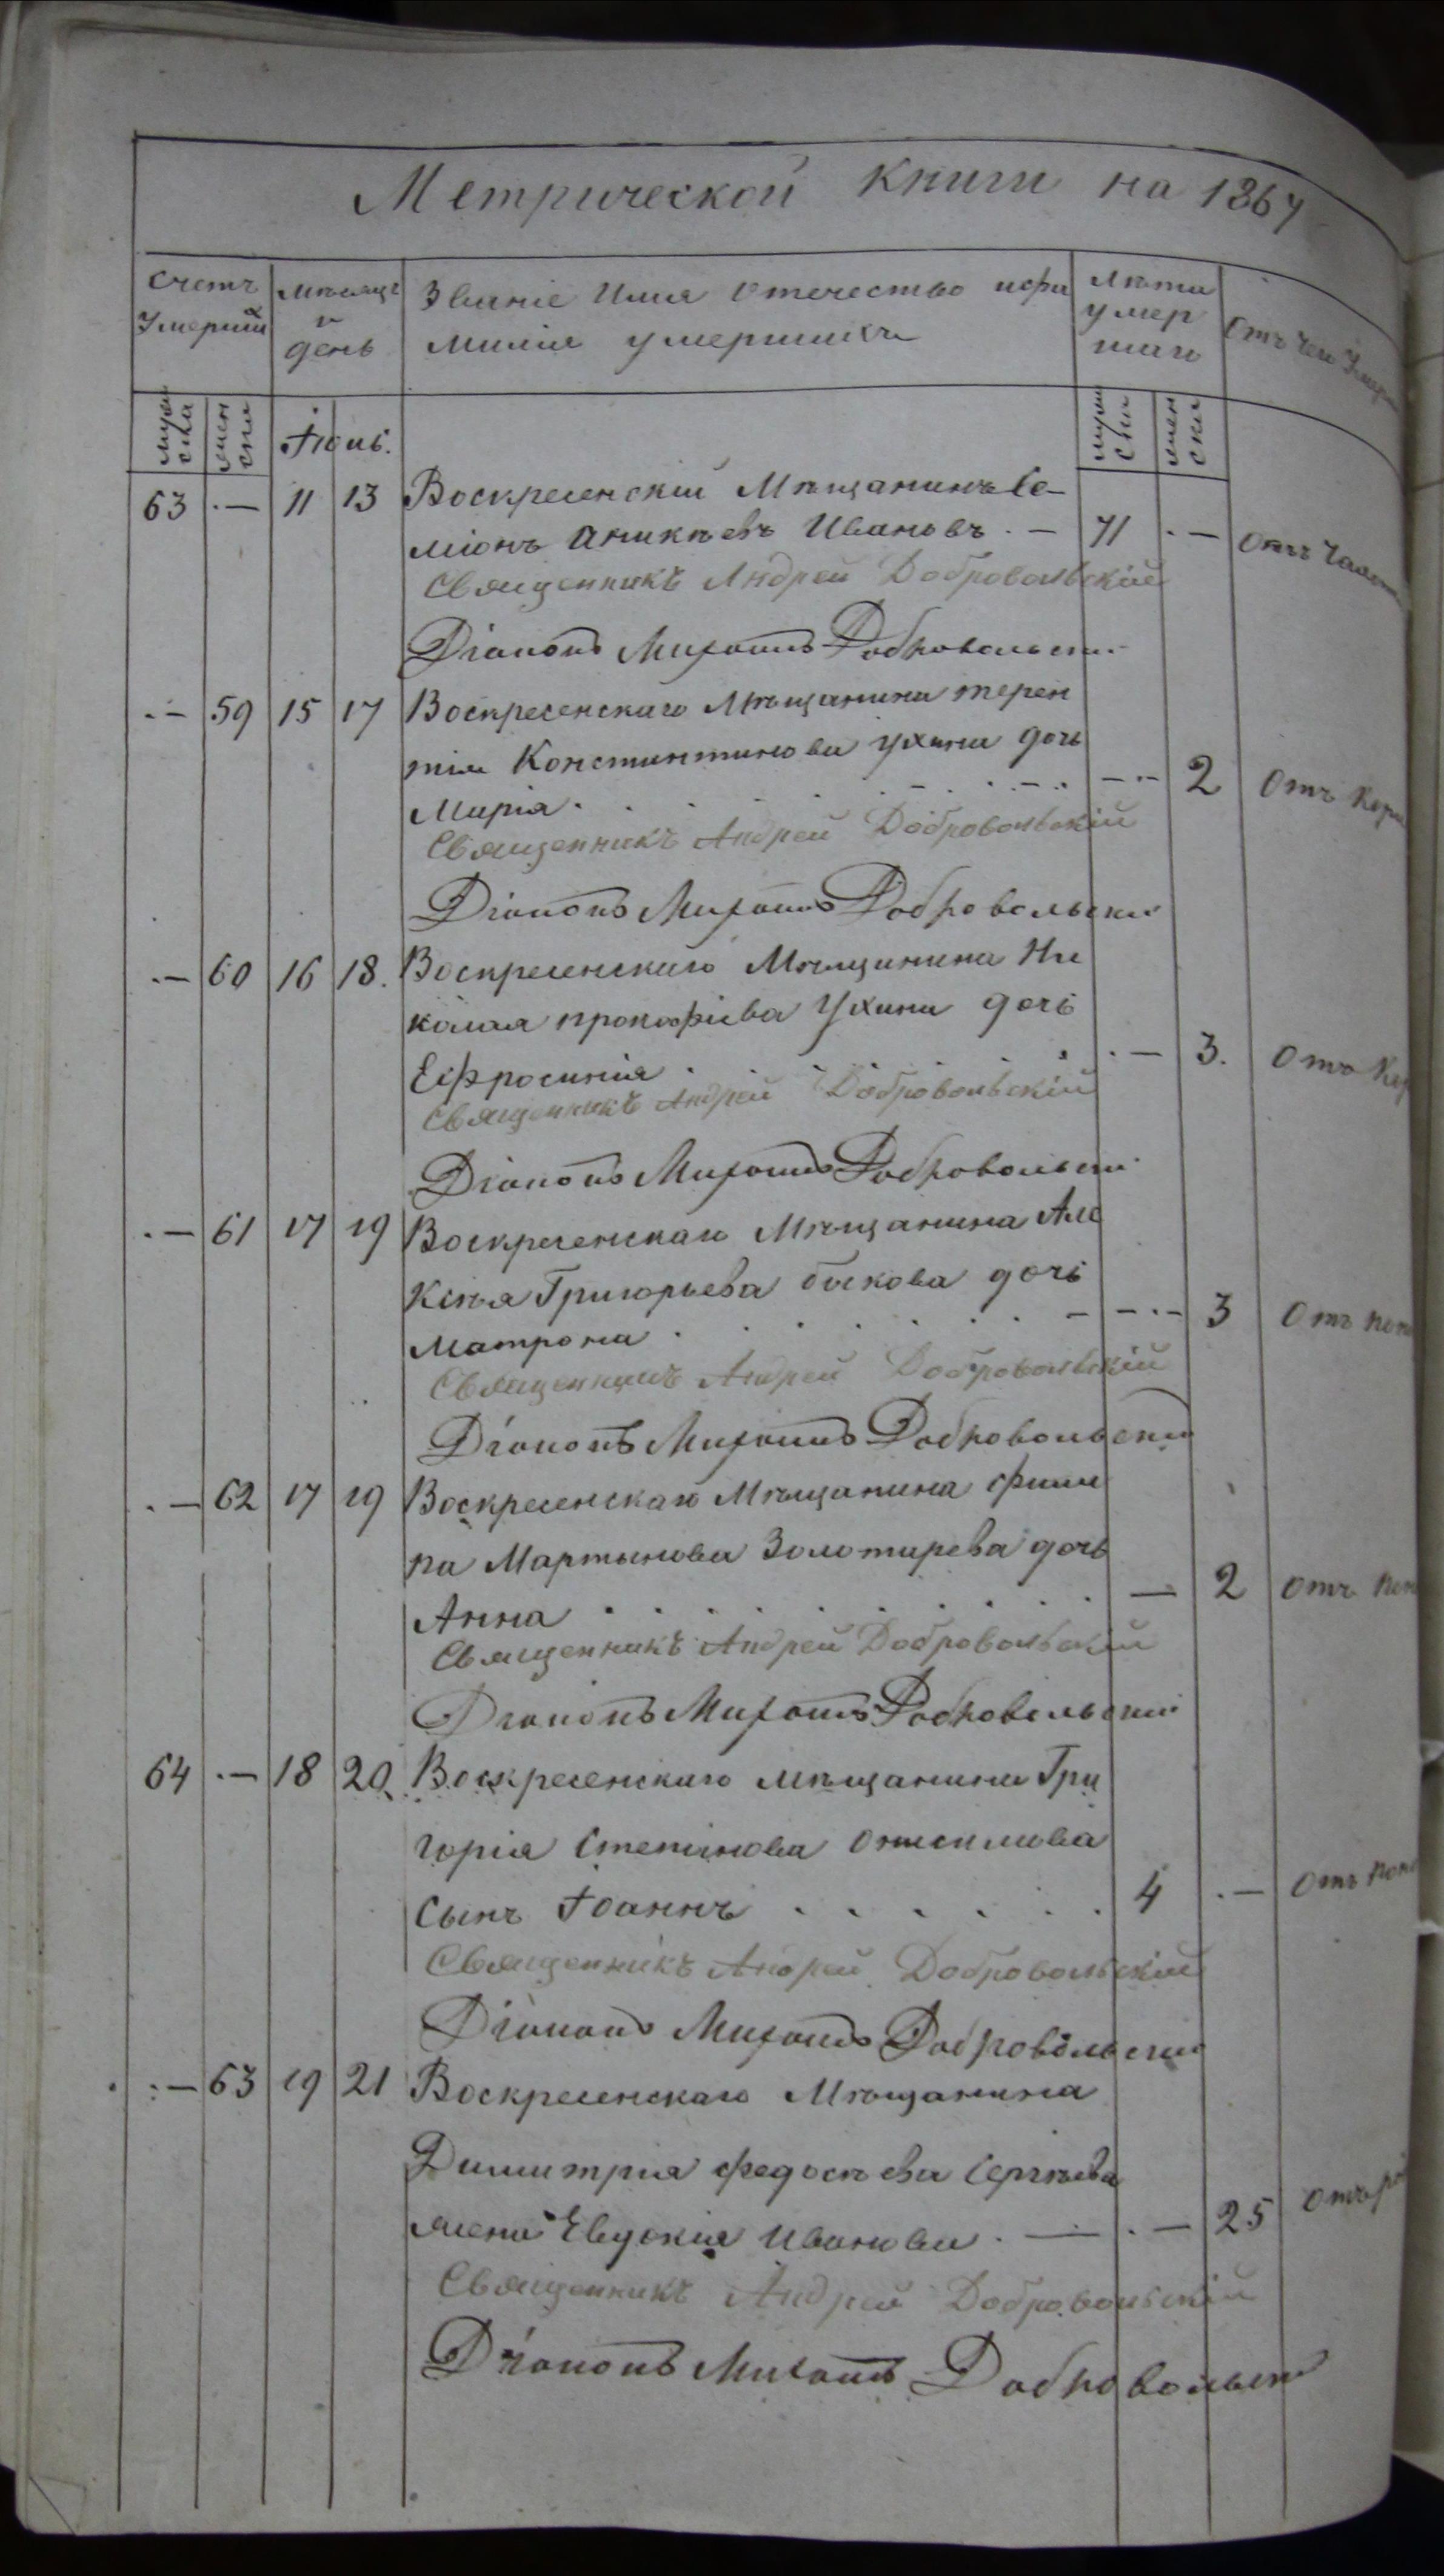 Метрической книги на 1867
Счетъ Умершихъ
Мѣсяцъ и день
Званіе Имя Отечество ифа
милія умершихъ
Лѣта умер шаго
Отъ чего Умеръ
муже ска
жен ска
Іюнь.
муже ска
жен ска
63 .— 11 13 Воскресенскій Мѣщанинъ Се-
міонъ Аникѣевъ Ивановъ .— 71 .— Отъ
Священникъ Андрей Добровольскій
Діаконъ Михаилъ Добровольскій
.— 59 15 17 Воскресенскаго Мѣщанина терен
тія Константинова Ухина дочь
Марія . . . . . . . . — — 2 Отъ
Священникъ Андрей Добровольскій
Діаконъ Михаилъ Добровольскій
.— 60 16 18. Воскресенскаго Мѣщанина Ни
колая прокофіева Ухина дочь
Ефросинія . . . . . .— 3. Отъ
Священникъ Андрей Добровольскій
Діаконъ Михаилъ Добровольскій
.— 61 17 19 Воскресенскаго Мѣщанина Але
Ксѣя Григорьева быкова дочь
Матрона . . . . . . . — — 3 Отъ
Священникъ Андрей Добровольскій
Діаконъ Михаилъ Добровольскій
.— 62 17 19 Воскресенскаго Мѣщанина фили
па Мартынова Золотарева дочь
Анна . . . . . . . . . — 2 Отъ
Священникъ Андрей Добровольскій
Діаконъ Михаилъ Добровольскій
64 .— 18 20. Воскресенскаго мѣщанина Гри
горія Степанова
Сынъ Іоаннъ . . . . . . 4 .— Отъ
Священникъ Андрей Добровольскій
Діаконъ Михаилъ Добровольскій
:— 63 19 21 Воскресенскаго Мѣщанина
Димитрія федосѣева Сергѣева
жена Евдокія Иванова . — .— 25 Отъ
Священникъ Андрей Добровольскій
Діаконъ Михаилъ Добровольскій